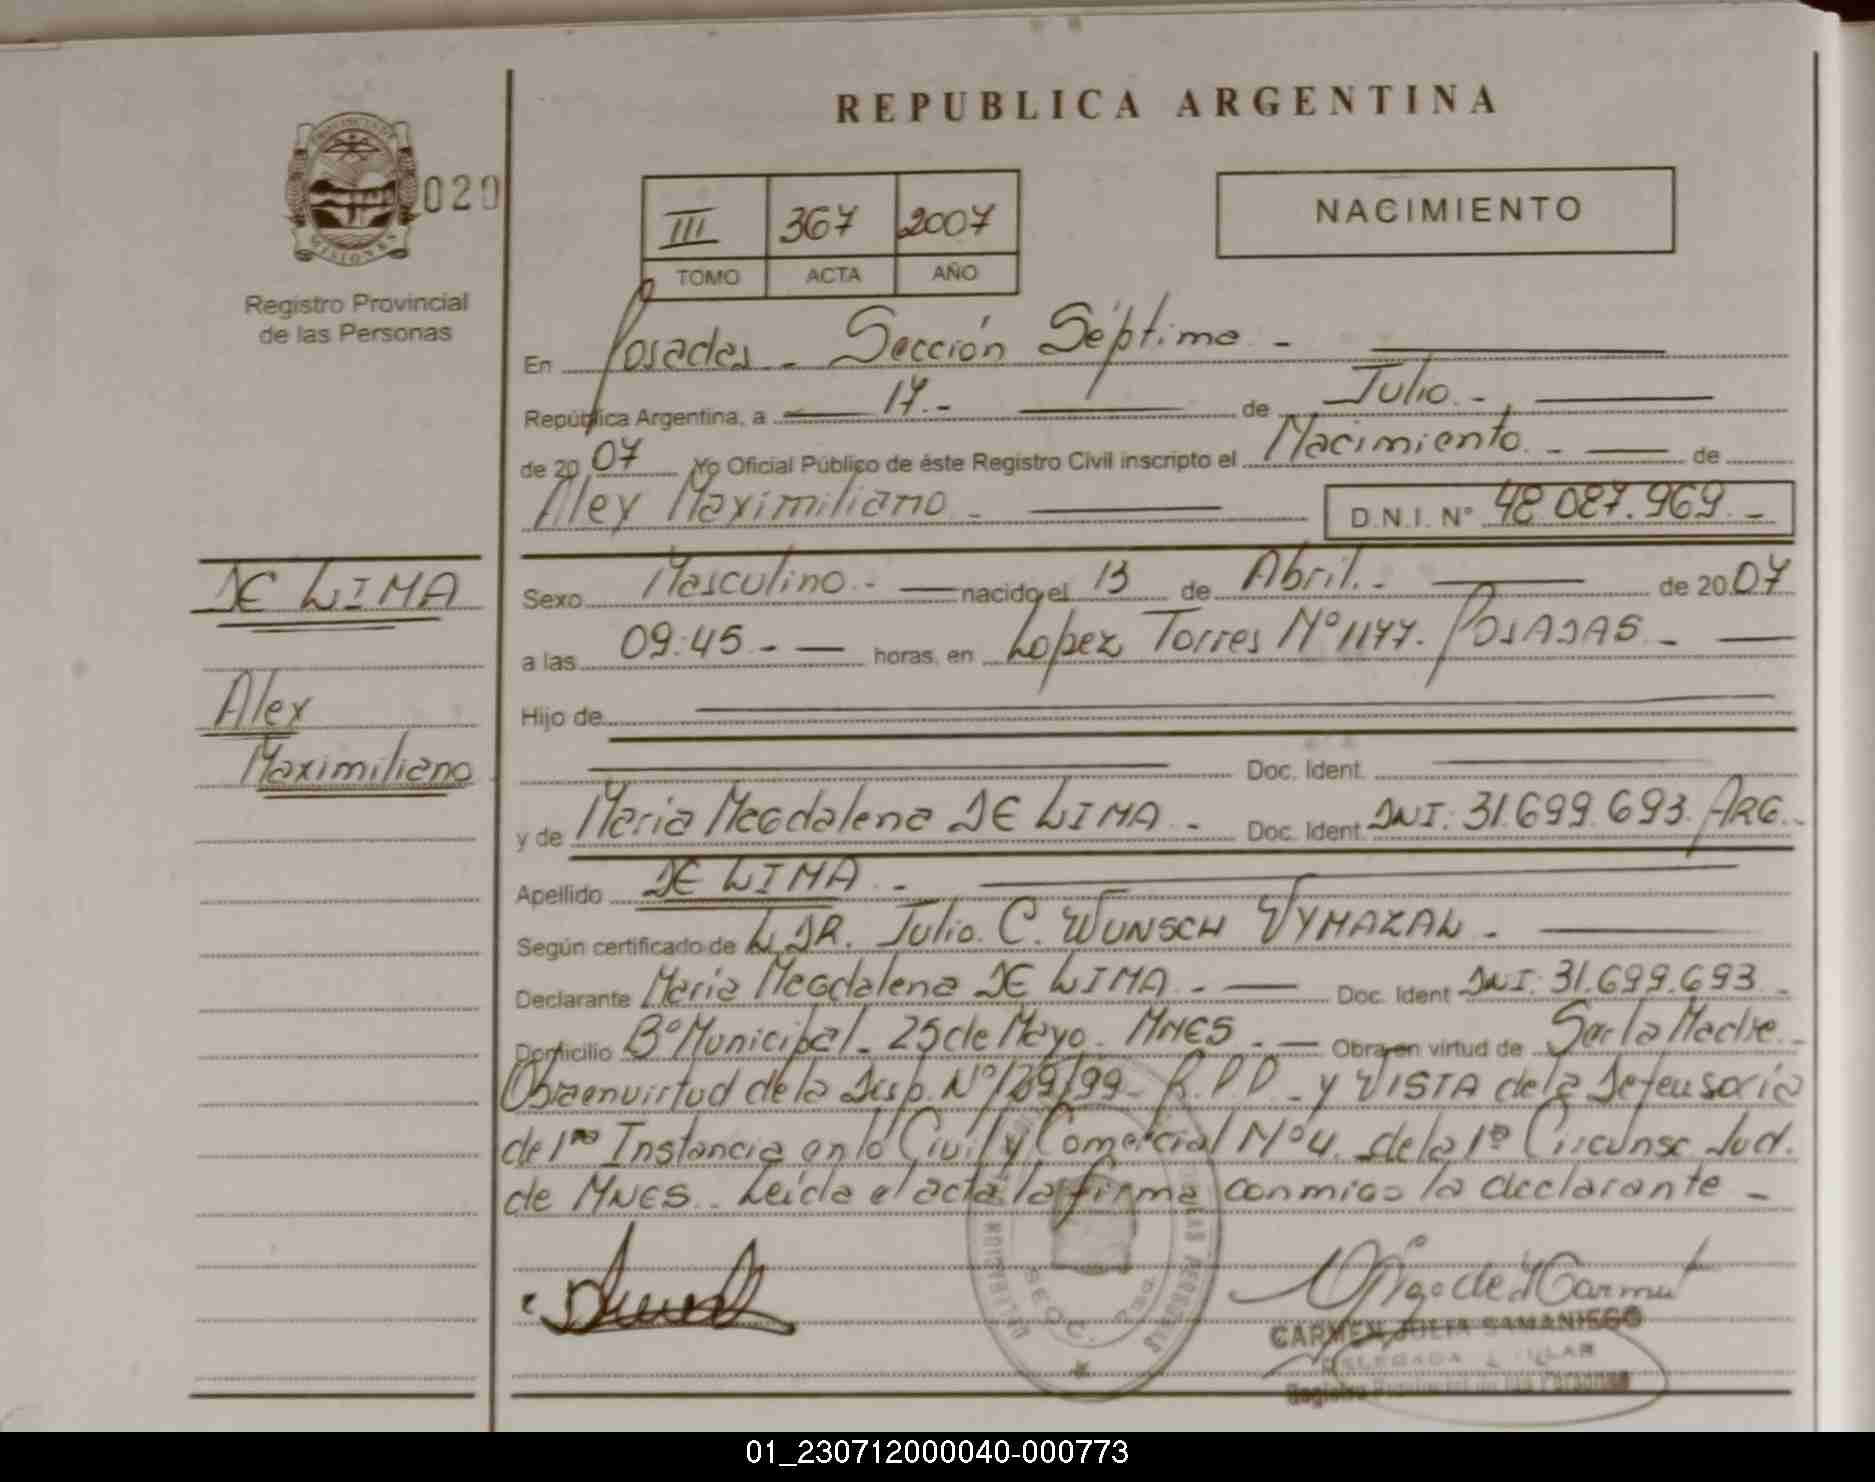 REPUBLICA ARGENTINA
PROVINCIA DE
MISIONES
020
Registro Provincial
de las Personas
III 367 2007
TOMO ACTA AÑO
NACIMIENTO
En Posadas - Sección Séptima -
República Argentina, a 17.- de Julio.-
de 2007 Yo Oficial Público de éste Registro Civil inscripto el Nacimiento.- de
Alex Maximiliano.- D.N.I. Nº 48.087.969.-
DE LIMA
Alex
Maximiliano
Sexo Masculino.- nacido el 13 de Abril.- de 2007
a las 09:45.- horas, en Lopez Torres Nº 1177. POSADAS.-
Hijo de
Doc. Ident.
y de Maria Magdalena DE LIMA.- Doc. Ident. DNI. 31.699.693. ARG.-
Apellido DE LIMA.-
Según certificado de L DR. Julio. C. WUNSCH VYMAZAL.-
Declarante Maria Magdalena DE LIMA.- Doc. Ident DNI. 31.699.693.-
Domicilio Bº Municipal - 25 de Mayo. MNES.- Obra en virtud de Ser la Madre.-
Obra en virtud de la Disp. Nº 139/99 - R.P.P. - y VISTA de la Defensoria
de 1ra Instancia en lo Civil y Comercial Nº 4. de la 1ª Circunsc. Jud.
de MNES.- Leida el acta la firma conmigo la declarante -
SECC. 7ma
CARMEN JULIA SAMANIEGO
DELEGADA TITULAR
Registro Provincial de las Personas
01_230712000040-000773